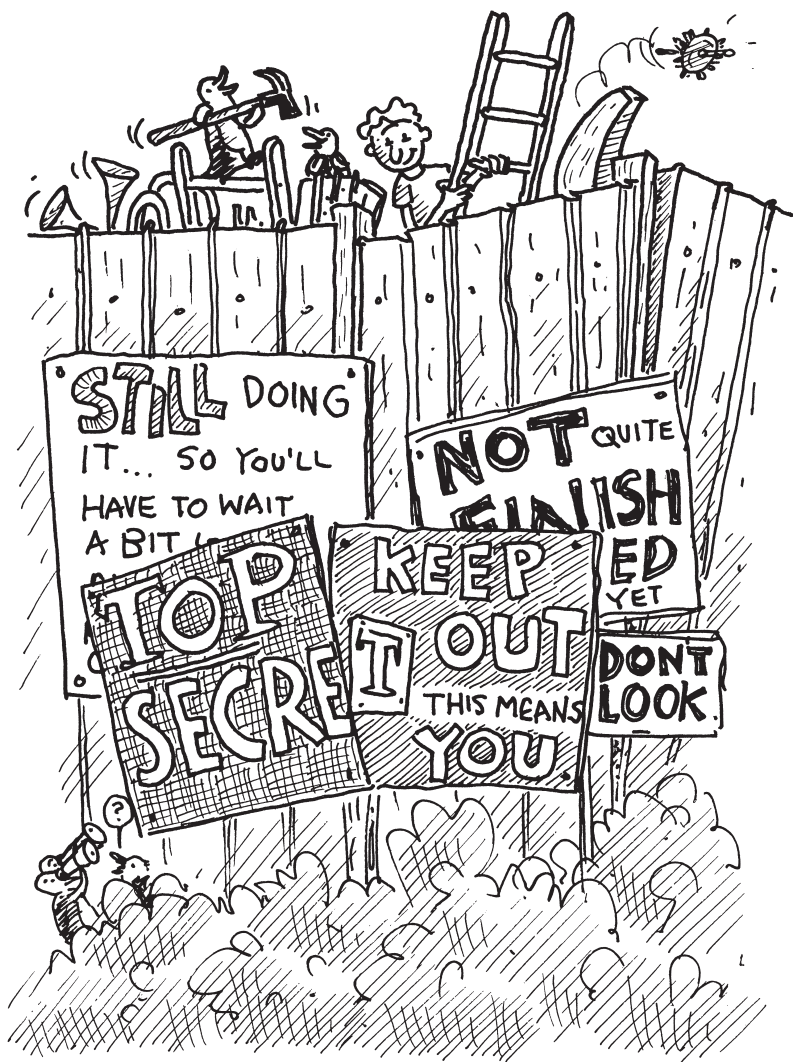 STILL DOING
IT... SO YOU'LL
HAVE TO WAIT
A BIT
NOT QUITE
FINISH
ED
YET
TOP
SECRE
T
KEEP
OUT
THIS MEANS
YOU
DONT
LOOK
?